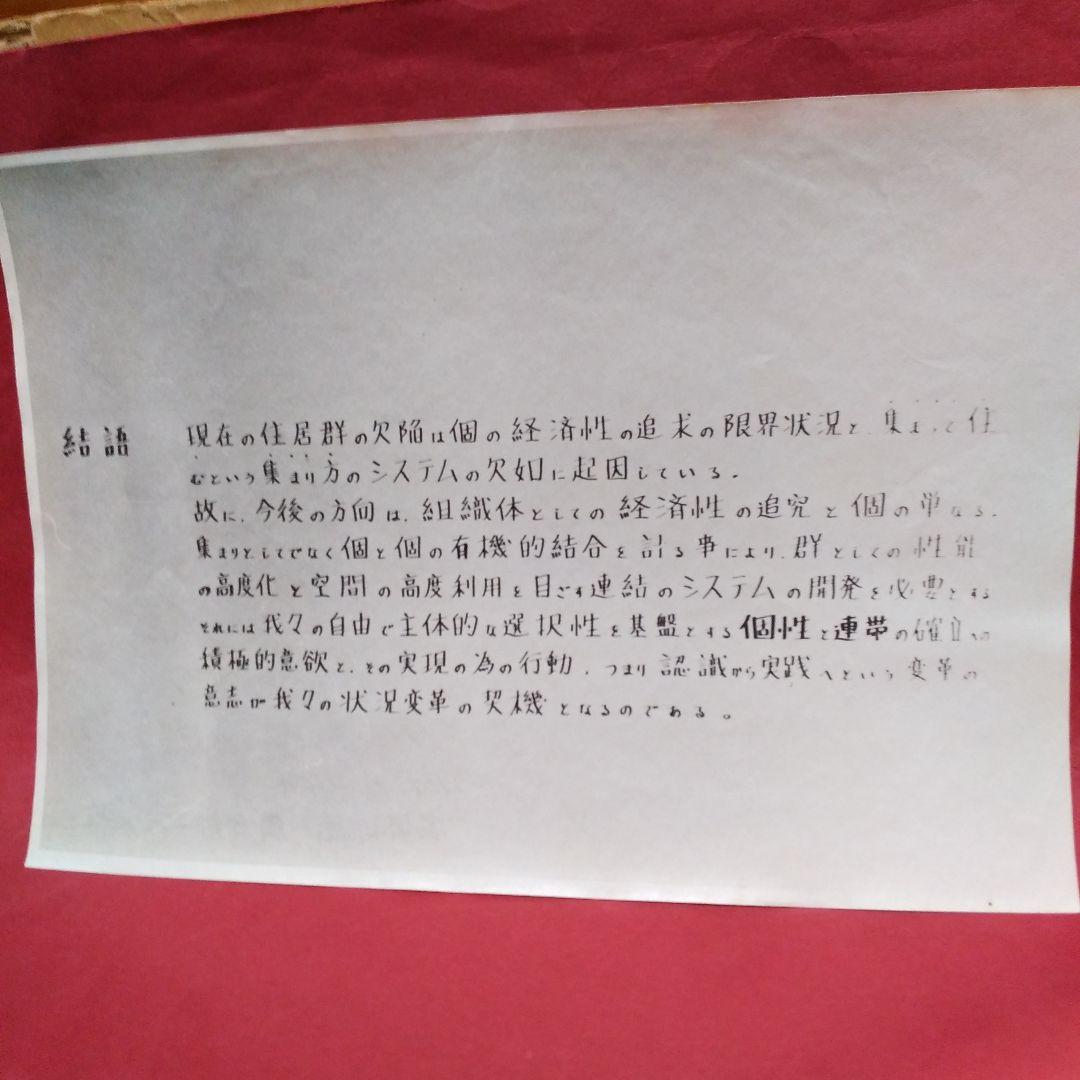 結語
現在の住居群の欠陥は個の経済性の追求の限界状況と、集まって住
むという集まり方のシステムの欠如に起因している。
故に、今後の方向は、組織体としての経済性の追究と個の単なる、
集まりとしてでなく個と個の有機的結合を計る事により、群としての性能
の高度化と空間の高度利用を目ざす連結のシステムの開発を必要とする
それには我々の自由で主体的な選択性を基盤とする個性と連帯の確立への
積極的意欲と、その実現の為の行動、つまり認識から実践へという変革の
意志が我々の状況変革の契機となるのである。